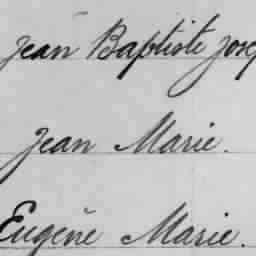 Jean Baptiste Josep
Jean Marie.
Eugène Marie.